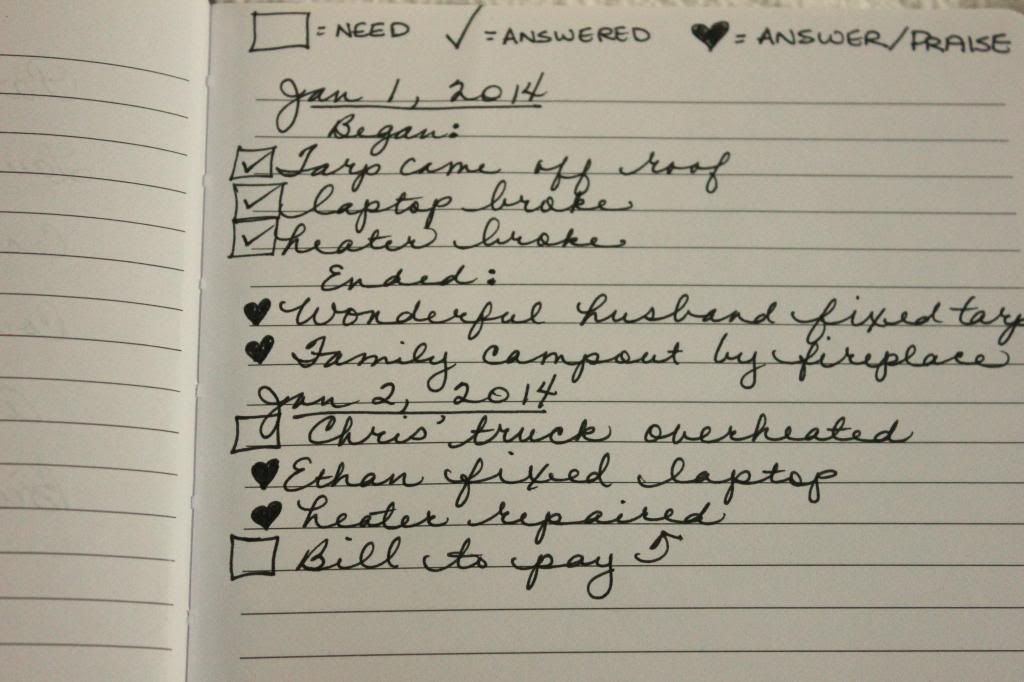 ☐ = NEED ✓ = ANSWERED ♥ = ANSWER/PRAISE
Jan 1, 2014
Began:
☑ Tarp came off roof
☑ laptop broke
☑ heater broke
Ended:
♥ Wonderful husband fixed tarp
♥ Family campout by fireplace
Jan 2, 2014
☐ Chris' truck overheated
♥ Ethan fixed laptop
♥ heater repaired
☐ Bill to pay ⤴